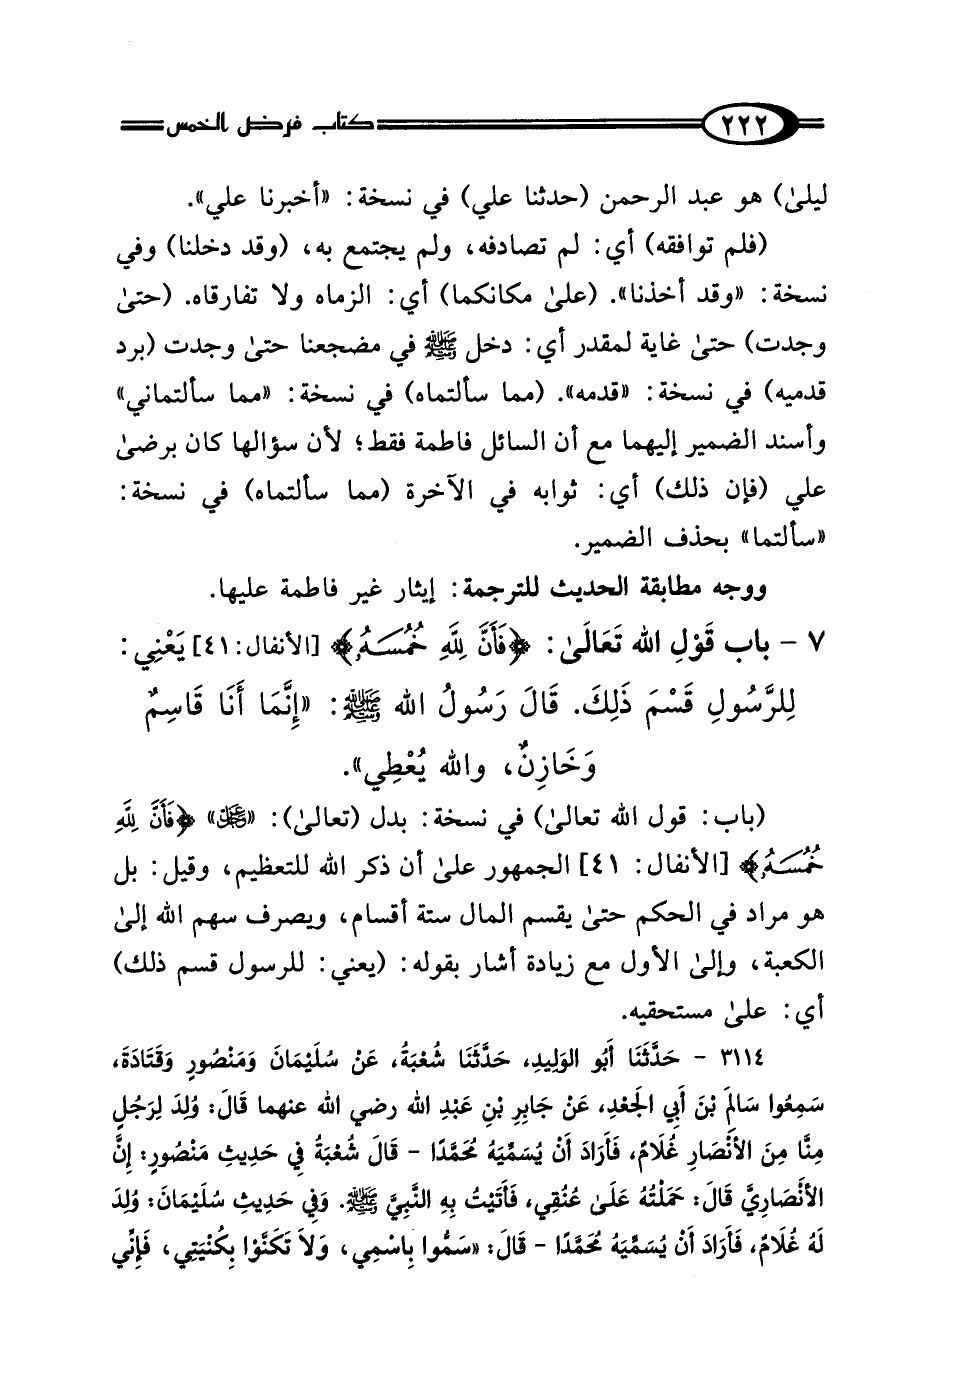 ٢٢٢ كتاب فرض الخمس
ليلىٰ) هو عبد الرحمن (حدثنا علي) في نسخة: «أخبرنا علي».
(فلم توافقه) أي: لم تصادفه، ولم يجتمع به، (وقد دخلنا) وفي
نسخة: «وقد أخذنا». (علىٰ مكانكما) أي: الزماه ولا تفارقاه. (حتىٰ
وجدت) حتىٰ غاية لمقدر أي: دخل ﷺ في مضجعنا حتىٰ وجدت (برد
قدميه) في نسخة: «قدمه». (مما سألتماه) في نسخة: «مما سألتماني»
وأسند الضمير إليهما مع أن السائل فاطمة فقط؛ لأن سؤالها كان برضىٰ
علي (فإن ذلك) أي: ثوابه في الآخرة (مما سألتماه) في نسخة:
«سألتما» بحذف الضمير.
ووجه مطابقة الحديث للترجمة: إيثار غير فاطمة عليها.
٧ - باب قَوْلِ الله تَعَالَىٰ: ﴿فَأَنَّ لِلَّهِ خُمُسَهُۥ﴾ [الأنفال: ٤١] يَعْنِي:
لِلرَّسُولِ قَسْمَ ذَلِكَ. قَالَ رَسُولُ الله ﷺ: «إِنَّمَا أَنَا قَاسِمٌ
وَخَازِنٌ، والله يُعْطِي».
(باب: قول الله تعالىٰ) في نسخة: بدل (تعالىٰ): «ﷻ» ﴿فَأَنَّ لِلَّهِ
خُمُسَهُۥ﴾ [الأنفال: ٤١] الجمهور علىٰ أن ذكر الله للتعظيم، وقيل: بل
هو مراد في الحكم حتىٰ يقسم المال ستة أقسام، ويصرف سهم الله إلىٰ
الكعبة، وإلىٰ الأول مع زيادة أشار بقوله: (يعني: للرسول قسم ذلك)
أي: علىٰ مستحقيه.
٣١١٤ - حَدَّثَنَا أَبُو الوَلِيدِ، حَدَّثَنَا شُعْبَةُ، عَنْ سُلَيْمَانَ وَمَنْصُورٍ وَقَتَادَةَ،
سَمِعُوا سَالِمَ بْنَ أَبِي الجَعْدِ، عَنْ جَابِرِ بْنِ عَبْدِ الله رضي الله عنهما قَالَ: وُلِدَ لِرَجُلٍ
مِنَّا مِنَ الأَنْصَارِ غُلَامٌ، فَأَرَادَ أَنْ يُسَمِّيَهُ مُحَمَّدًا - قَالَ شُعْبَةُ فِي حَدِيثِ مَنْصُورٍ: إِنَّ
الأَنْصَارِيَّ قَالَ: حَمَلْتُهُ عَلَىٰ عُنُقِي، فَأَتَيْتُ بِهِ النَّبِيَّ ﷺ. وَفِي حَدِيثِ سُلَيْمَانَ: وُلِدَ
لَهُ غُلَامٌ، فَأَرَادَ أَنْ يُسَمِّيَهُ مُحَمَّدًا - قَالَ: «سَمُّوا بِاسْمِي، وَلَا تَكَنَّوْا بِكُنْيَتِي، فَإِنِّي